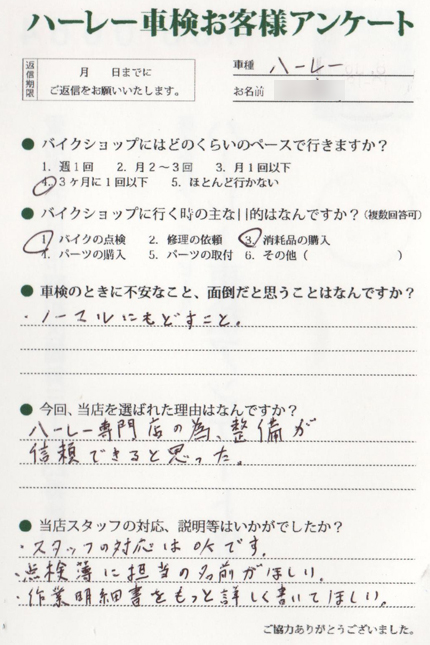 ハーレー車検お客様アンケート
返信期限
月　　日までに
ご返信をお願いいたします。
車種 ハーレー
お名前
● バイクショップにはどのくらいのペースで行きますか？
1. 週1回　2. 月2～3回　3. 月1回以下
4. 3ヶ月に1回以下　5. ほとんど行かない
● バイクショップに行く時の主な目的はなんですか？（複数回答可）
1. バイクの点検　2. 修理の依頼　3. 消耗品の購入
4. パーツの購入　5. パーツの取付　6. その他（　　　　　　）
● 車検のときに不安なこと、面倒だと思うことはなんですか？
・ノーマルにもどすこと。
● 今回、当店を選ばれた理由はなんですか？
ハーレー専門店の為、整備が
信頼できると思った。
● 当店スタッフの対応、説明等はいかがでしたか？
・スタッフの対応はOKです。
・点検簿に担当の名前がほしい。
・作業明細書をもっと詳しく書いてほしい。
ご協力ありがとうございました。